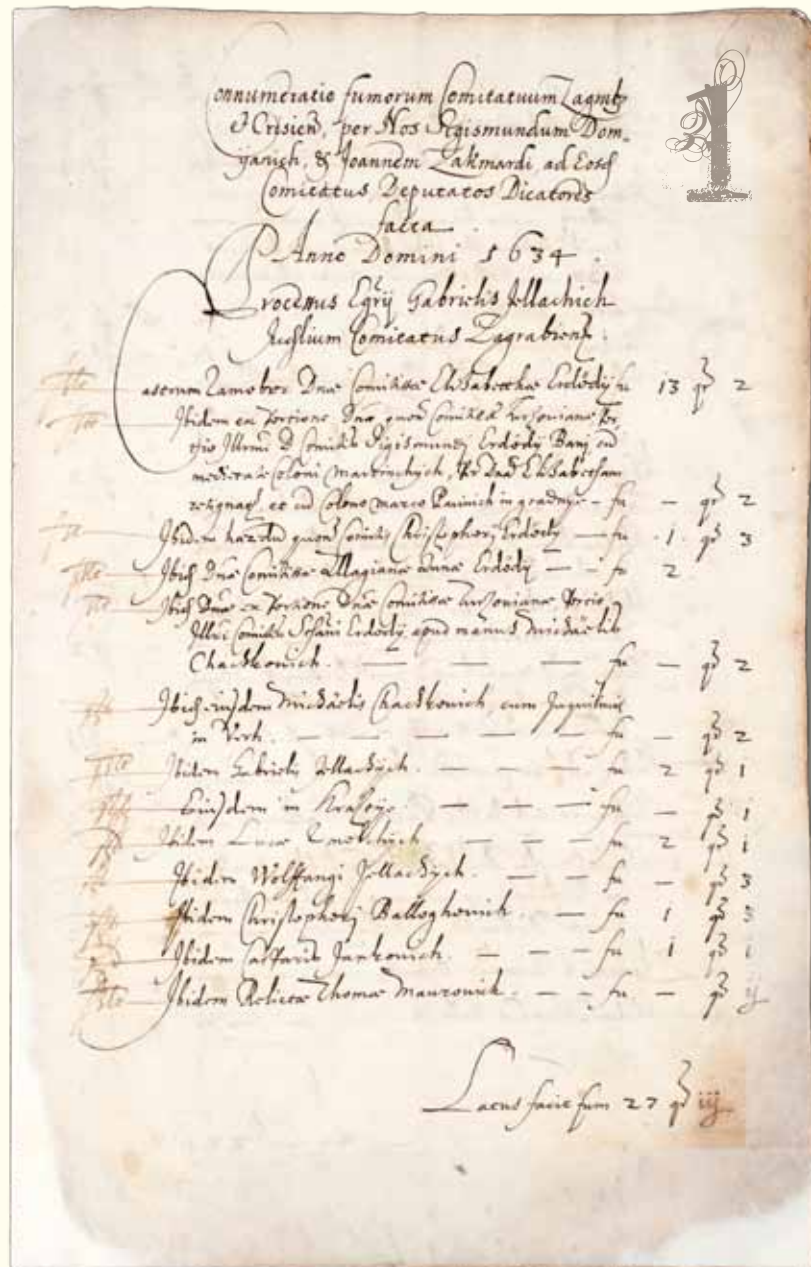 Connumeratio fumorum Comitatuum Zagrab
et Crisien, per Nos Segismundum Dom=
& Joannem Zakmardi, ad Eosd
Comitatus Deputatos Dicatores
facta.
Anno Domini 1634.
Processus Egrij Gabrielis Jellachich
Judlium Comitatus Zagrabien.
Castrum Zamobor Dnae Comitissae Elisabethae Erdödÿ fu 13 qr 2
Ibidem ex Portione Dnae quon Comitissae
Illmi D Comitis Sigismundj Erdödÿ Banj cum
medietate Coloni Martinchych, Elisabetham
resignat, et cum Colono Marco in gradnye - fu — qr 2
Ibidem quon Comitis Christophorj Erdödÿ — fu .1. qr 3
Ibid Dnae Comitissae Annae Erdödÿ — - fu 2
Ibid ex Portione Dnae Comitissae Portio
Comitis Erdödÿ, apud manus Michaelis
Chackovich. — — — fu — qr 2
Ibid eiusdem Michaelis Chackovich, cum Inquilinis
in Verh. — — — — — fu — qr 2
Ibidem Gabrielis Jellachych. — — fu 2 qr 1
Eiusdem in — — — fu — qr 1
Ibidem Lucae — — — fu 2 qr 1
Ibidem Wolffgangi Jellachych. — — fu — qr 3
Ibidem Christophorj Balloghovich. — fu 1 qr 3
Ibidem Casparis Jankovich. — — - fu 1 qr 1
Ibidem Relictae Thomae Maurovich. — - fu — qr ij
Latus facit fum 27 qr iij
1